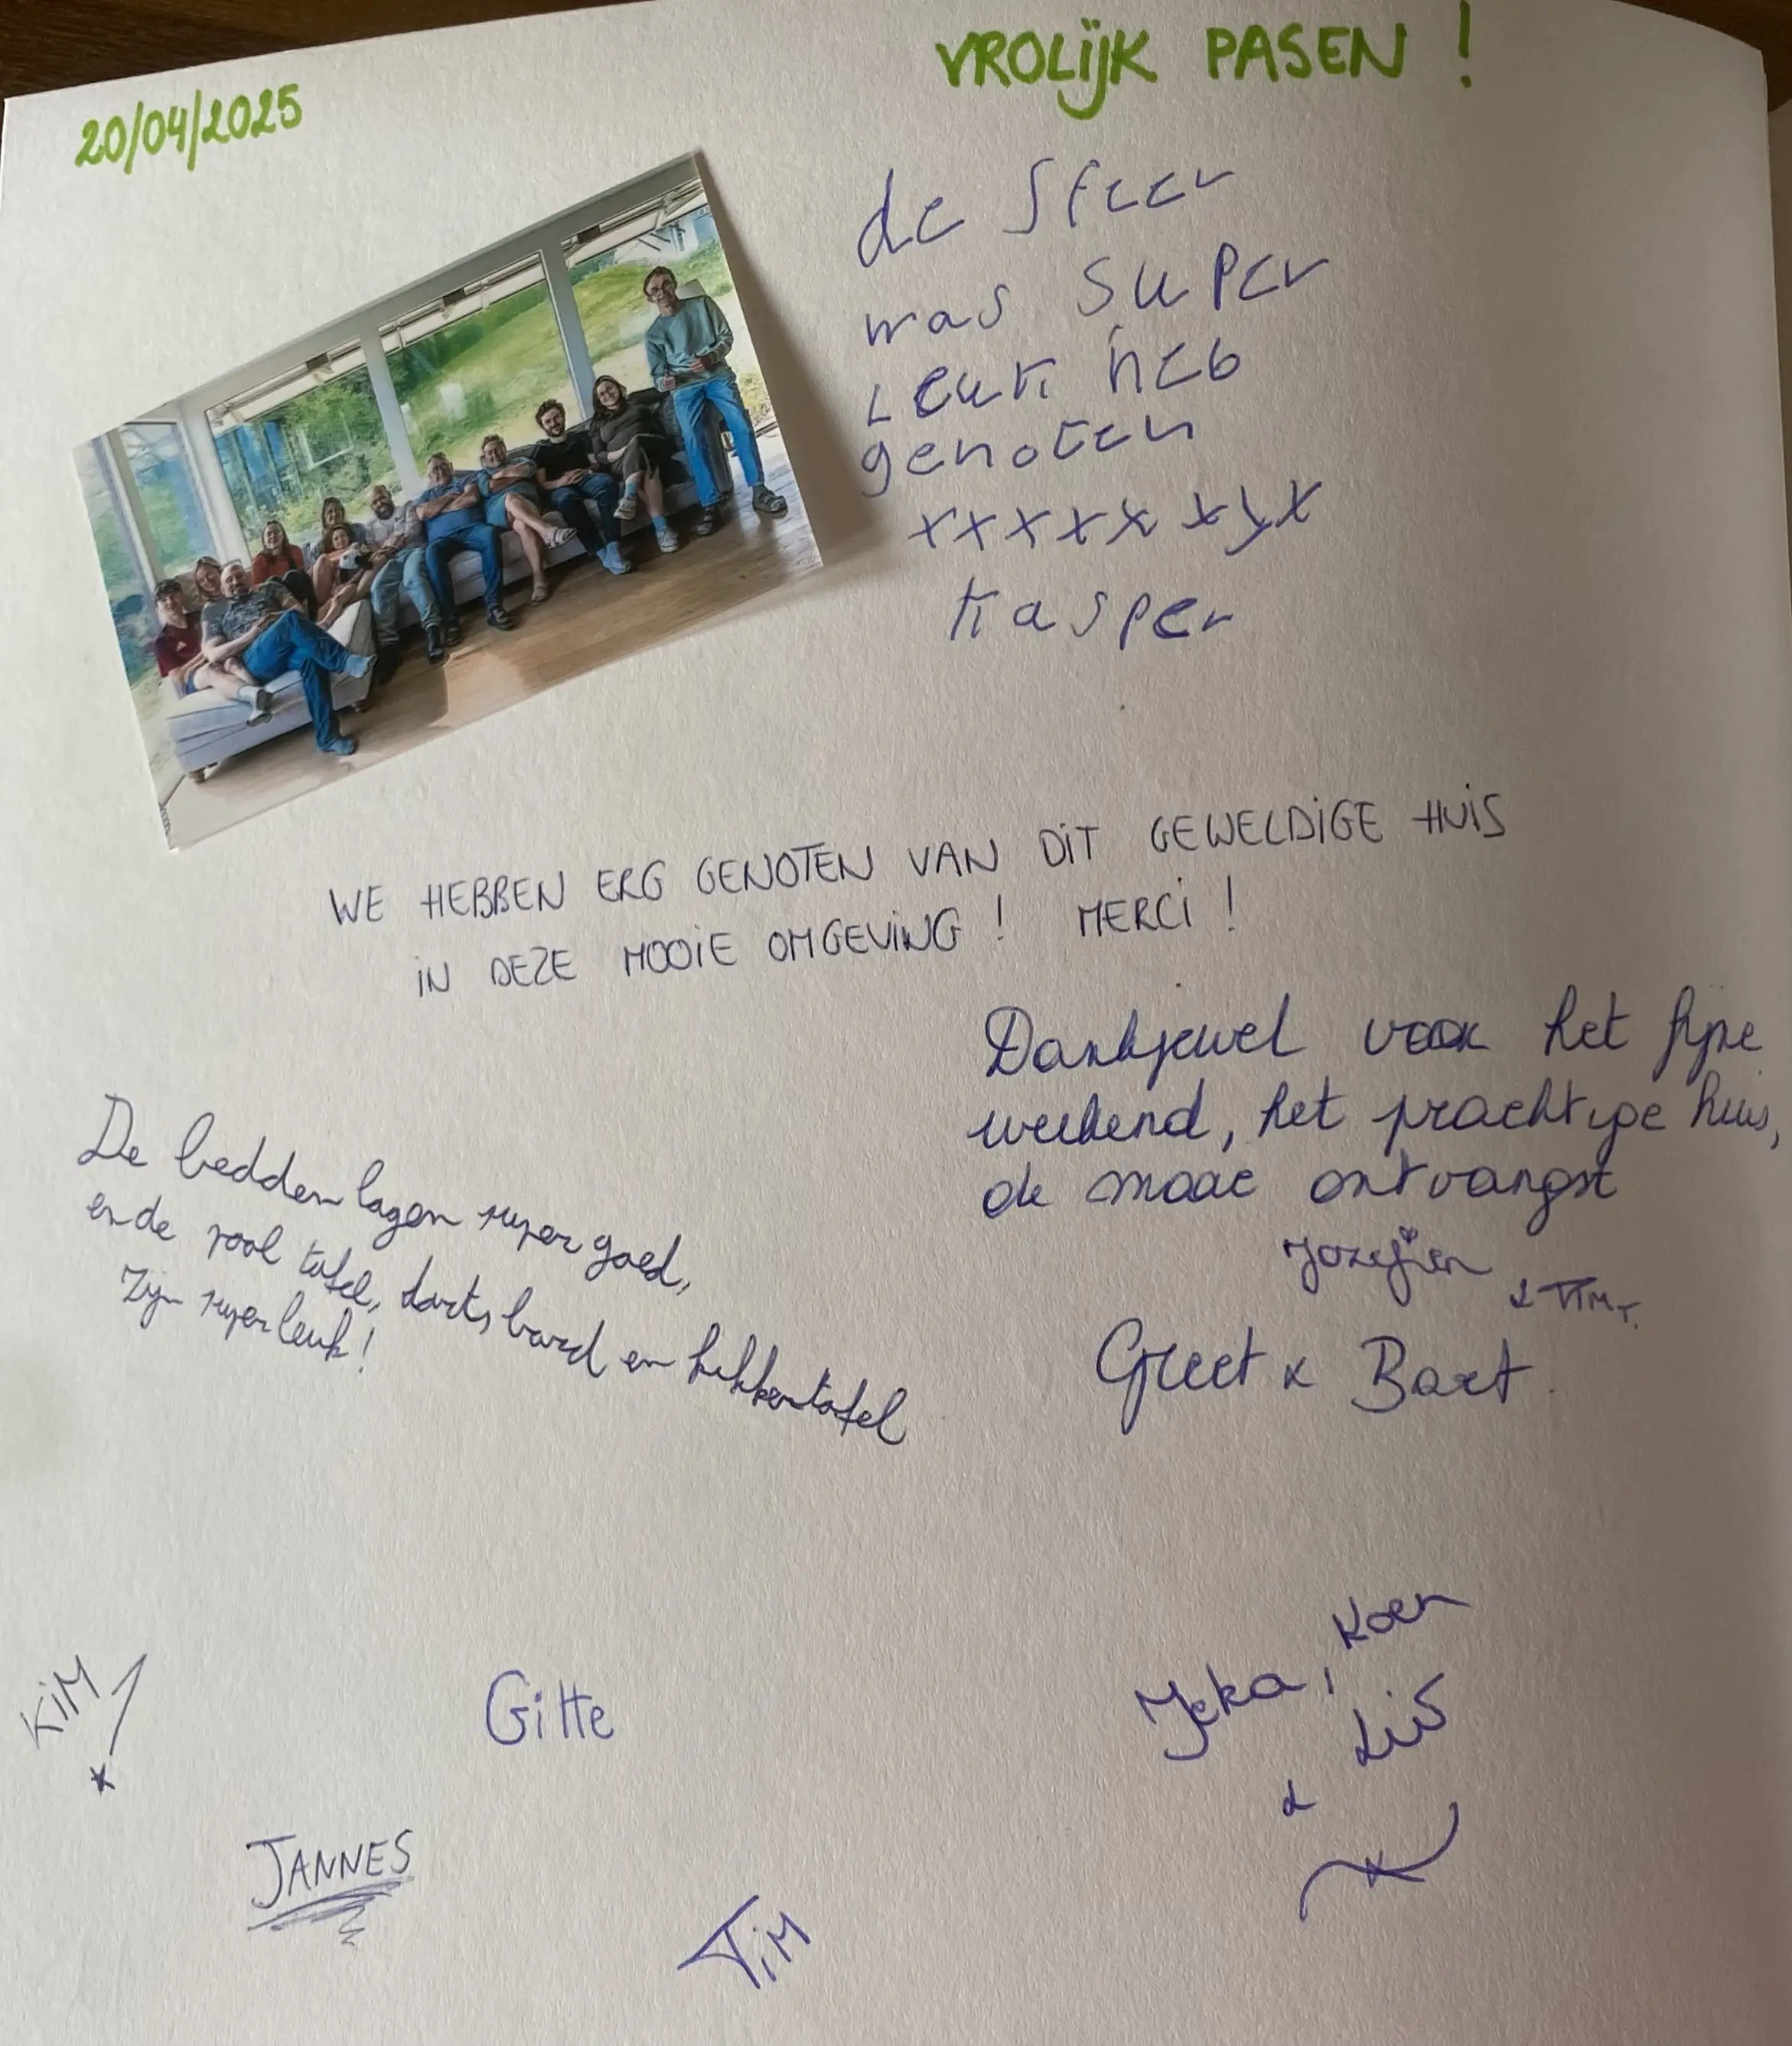 20/04/2025
VROLIJK PASEN !
de sfeer
was super
Leuk heb
genoten
xxxxx xyx
Kasper
WE HEBBEN ERG GENOTEN VAN DIT GEWELDIGE HUIS
IN DEZE MOOIE OMGEVING ! MERCI !
Dankjewel voor het fijne
weekend, het prachtige huis,
de mooie ontvangst
Jozefien
& TIM T.
Greet x Bart.
De bedden lagen super goed,
en de pool tafel, darts bord en kikkertafel
zijn super leuk!
KIM
Gitte
Koen
Yeka,
& Lis
JANNES
TIM